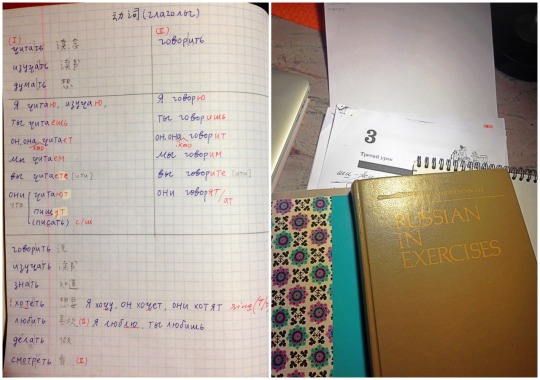 动词 (глаголы)
(I) (II)
читать говорить
изучать
думать 想
Я читаю, изучаю, Я говорю
ты читаешь ты говоришь
он, она читает он, она говорит
кто кто
мы читаем мы говорим
вы читаете [ити] вы говорите [ити]
они читают они говорят/ат
что
пишут
(писать) с/ш
говорить
изучать
знать 知道
! хотеть 想要 Я хочу, он хочет, они хотят
любить 喜欢 (II) Я люблю, ты любишь
делать 做
смотреть 看 (II)
3
Третий урок
RUSSIAN
IN
EXERCISES